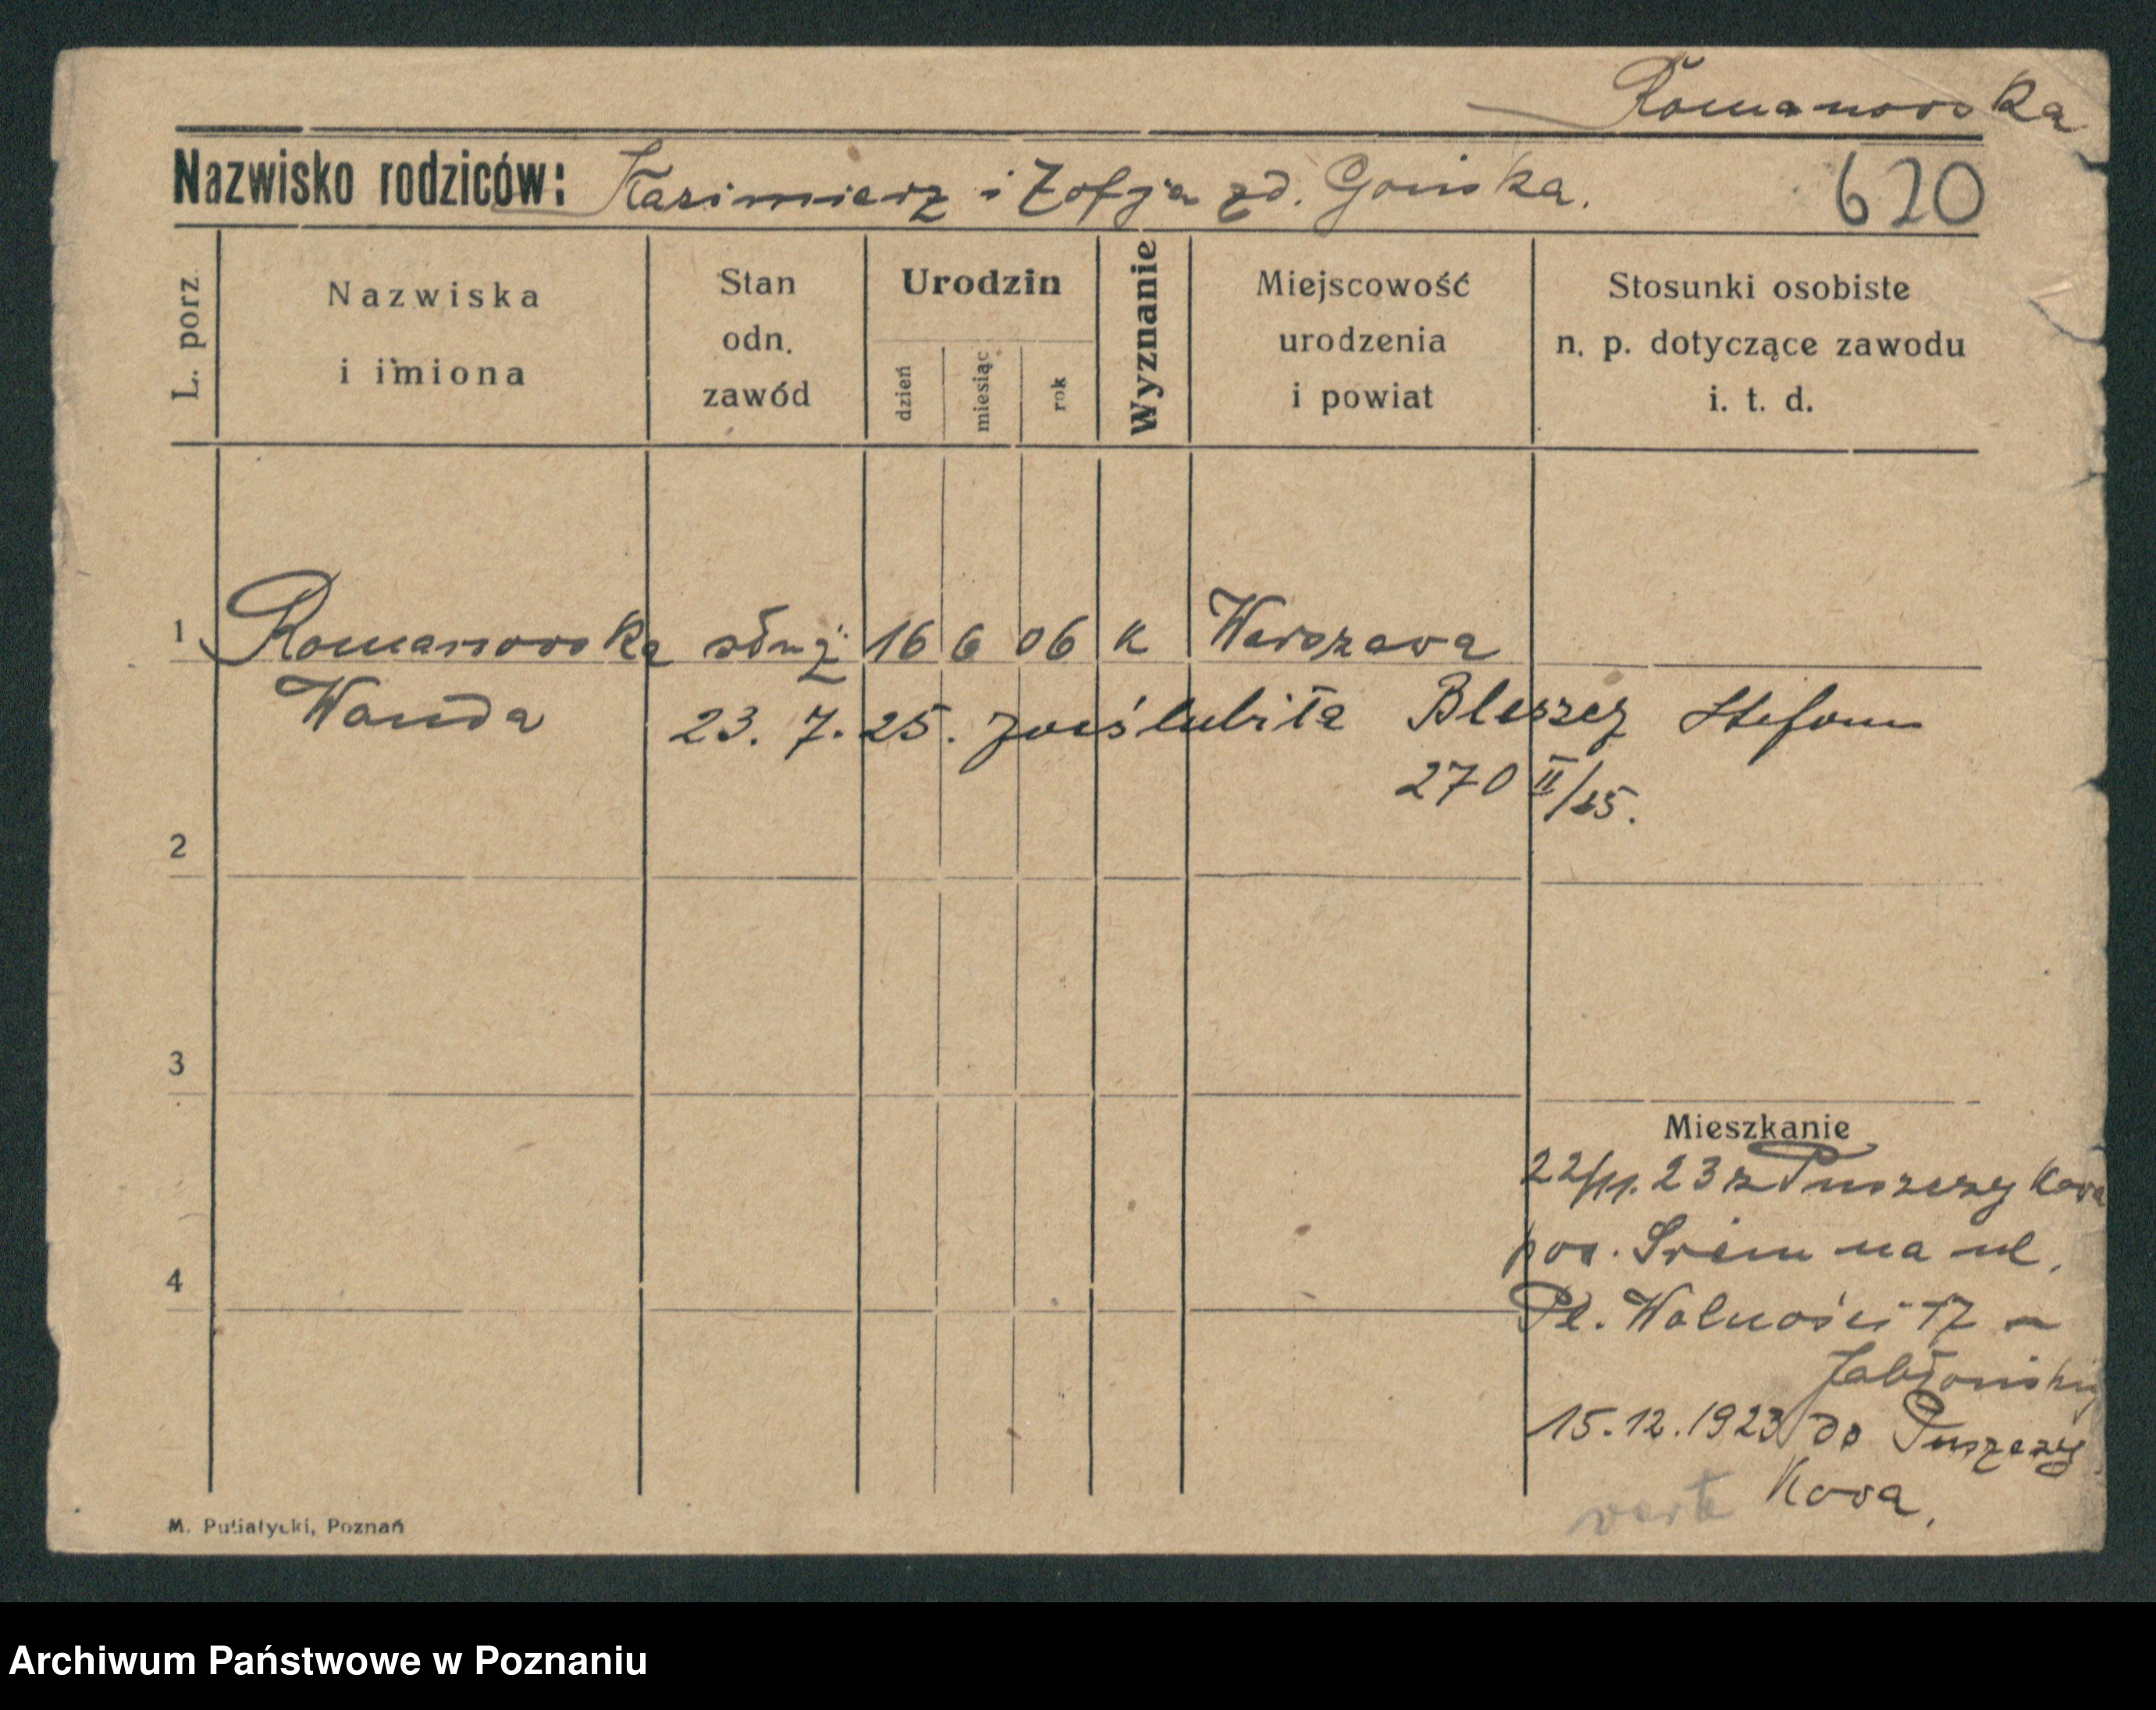 Romanowska
Nazwisko rodziców: Kazimierz i Zofja zd. Gońska.
620
L. porz.
Nazwiska
i imiona
Stan
odn.
zawód
Urodzin
dzień
miesiąc
rok
Wyznanie
Miejscowość
urodzenia
i powiat
Stosunki osobiste
n. p. dotyczące zawodu
i. t. d.
1 Romanowska służ 16 6 06 k Warszawa
Wanda 23. 7. 25. zaślubiła Stefan
270 II/25.
2
3
Mieszkanie
22/11. 23 z Puszczy
pow. Śrem na ul.
4
Pl. Wolności 17
15.12.1923 do Puszczy
M. Putiatycki, Poznań
Archiwum Państwowe w Poznaniu